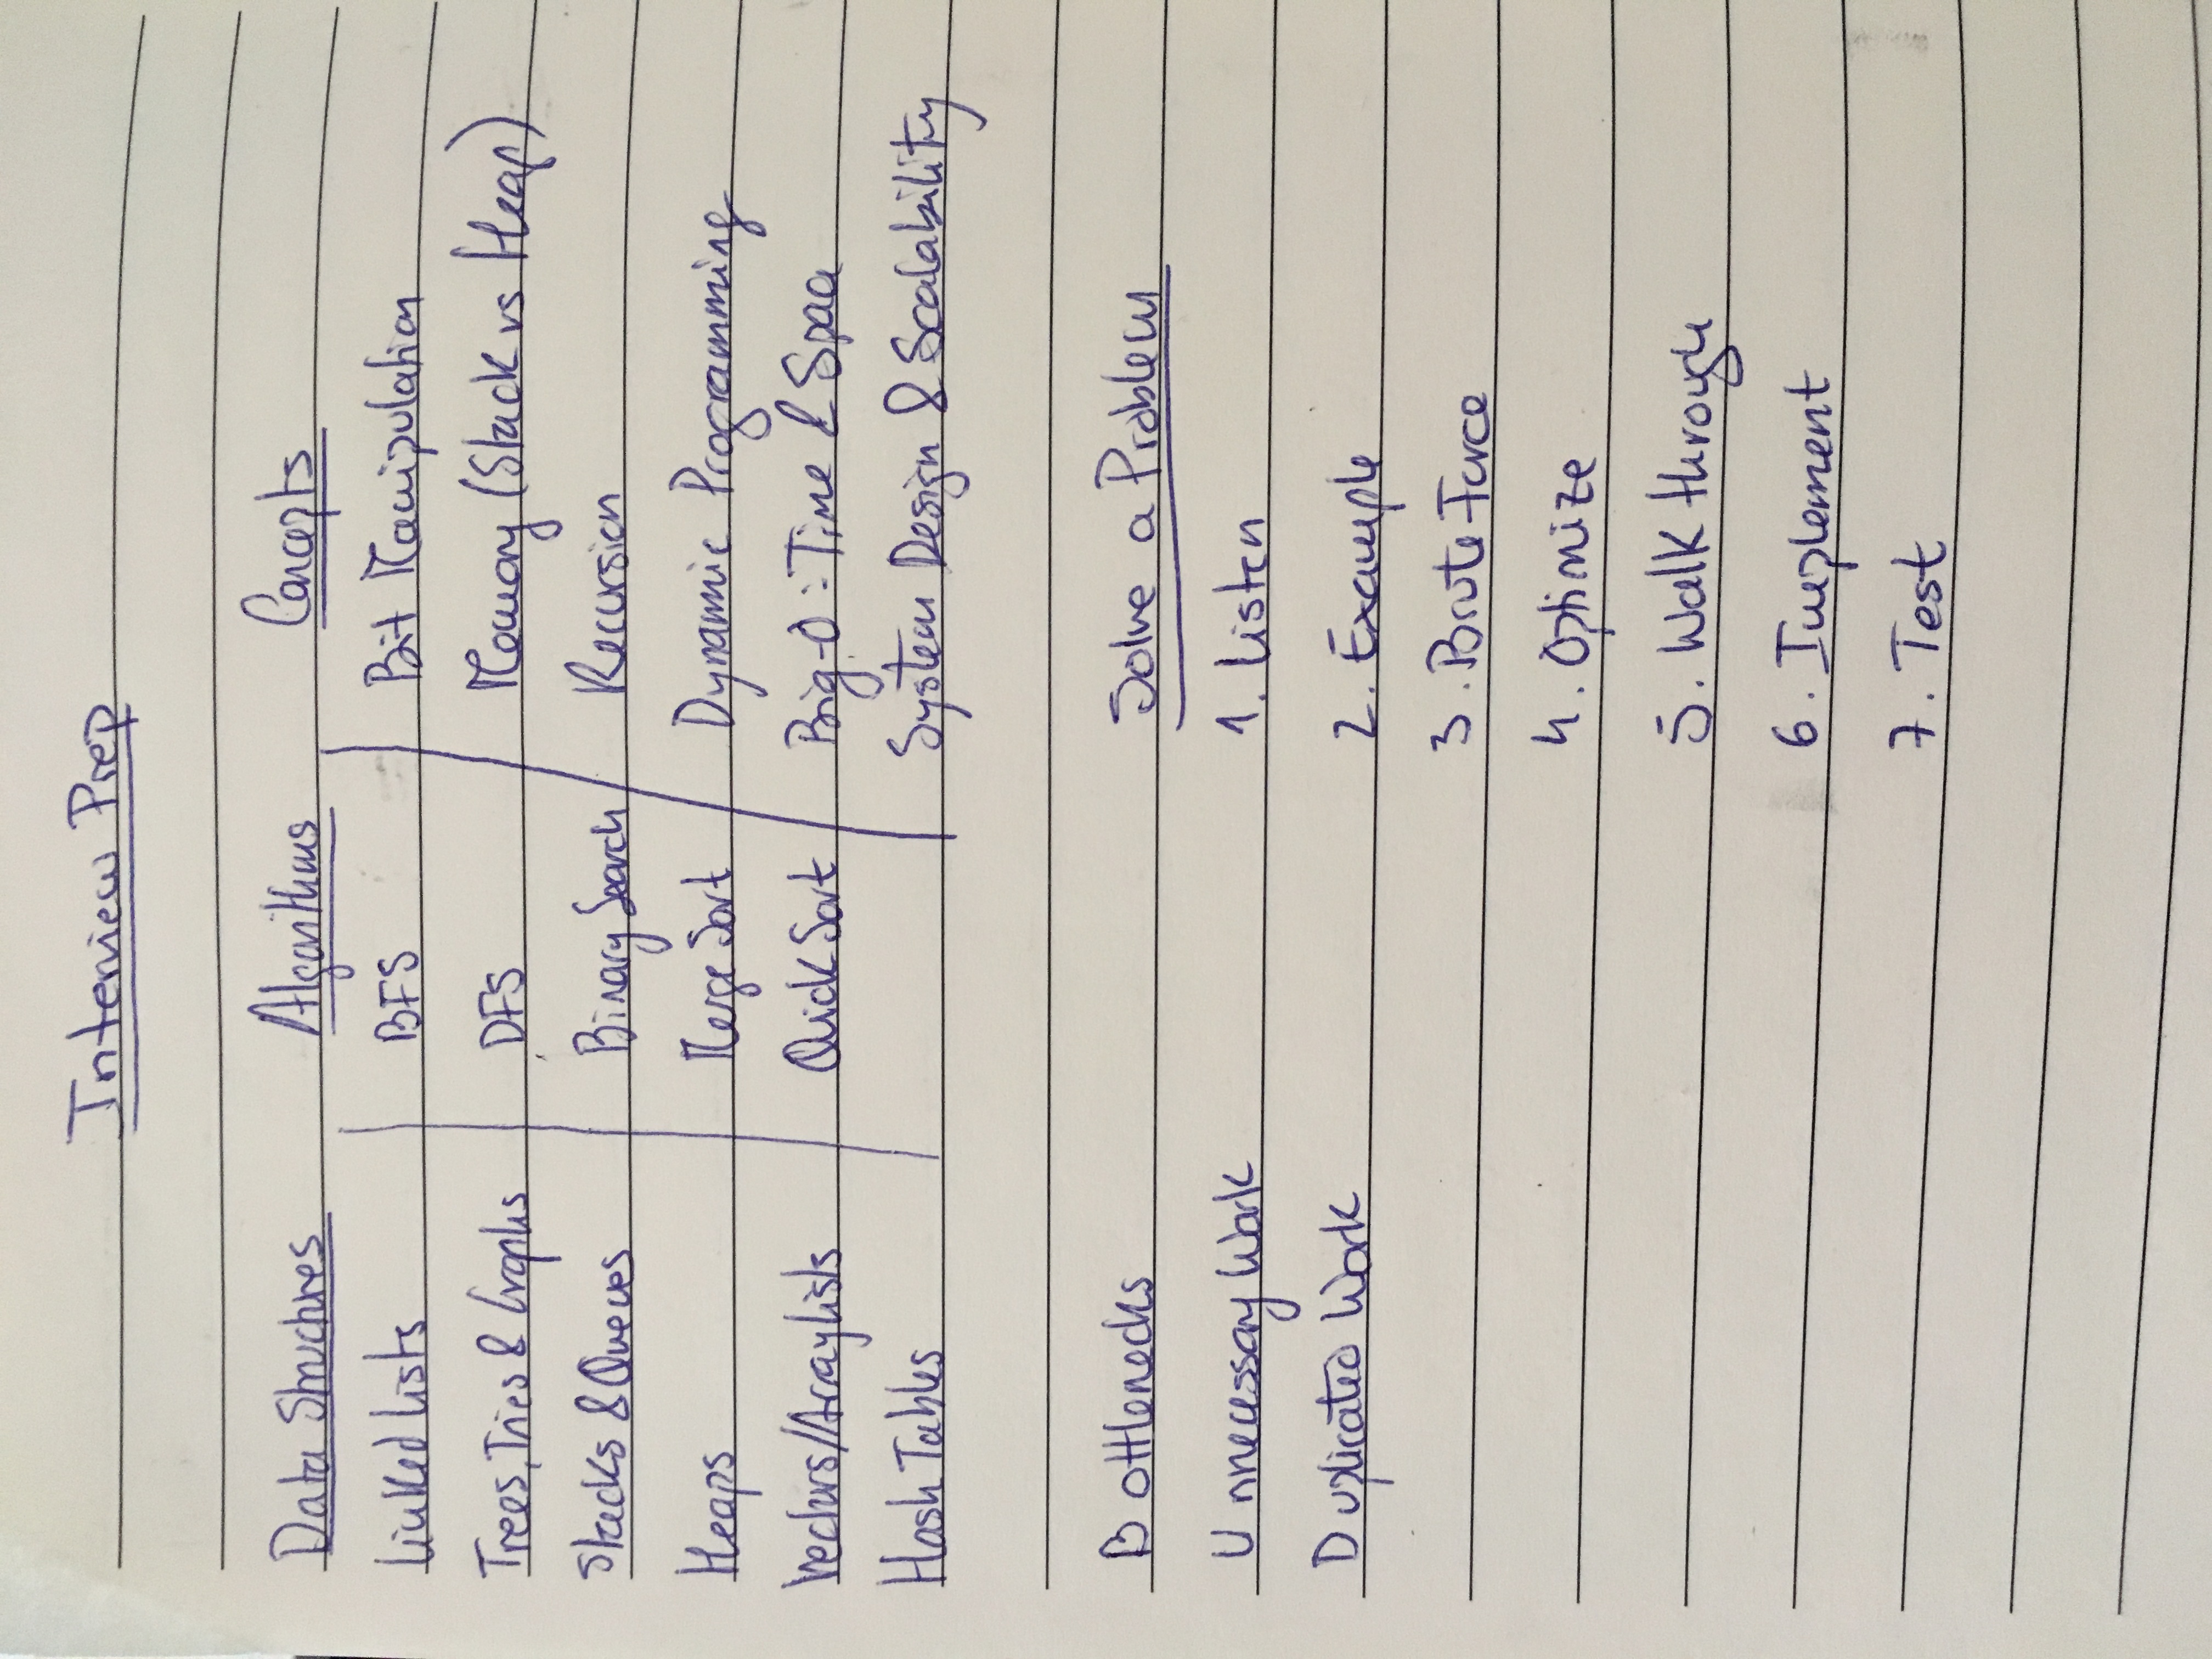 Interview Prep
Data Structures Algorithms Concepts
Linked Lists BFS Bit Manipulation
Trees, Tries & Graphs DFS Memory (Stack vs Heap)
Stacks & Queues Binary Search Recursion
Heaps Merge Sort Dynamic Programming
Vectors/ArrayLists Quick Sort Big-O: Time & Space
Hash Tables System Design & Scalability
Bottlenecks Solve a Problem
Unnecessary Work 1. Listen
Duplicated Work 2. Example
3. Brute-Force
4. Optimize
5. Walk through
6. Implement
7. Test